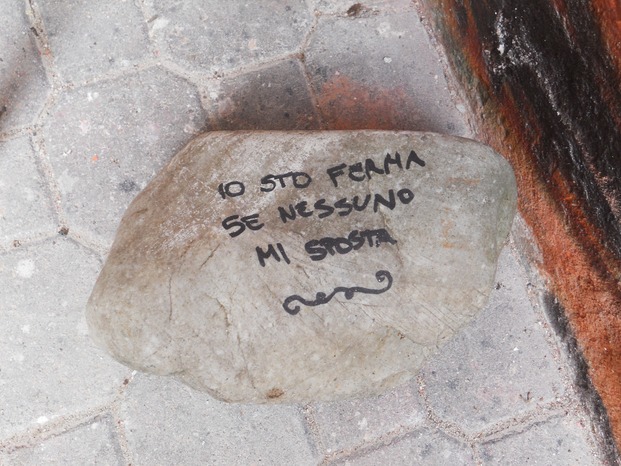 IO STO FERMA
SE NESSUNO
MI SPOSTA